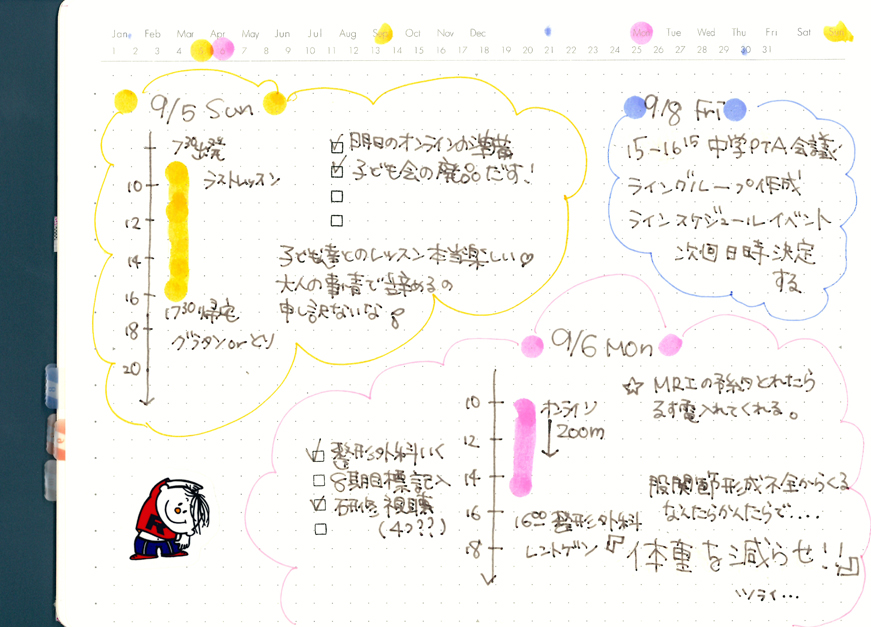 Jan Feb Mar Apr May Jun Jul Aug Sep Oct Nov Dec Mon Tue Wed Thu Fri Sat Sun
1 2 3 4 5 6 7 8 9 10 11 12 13 14 15 16 17 18 19 20 21 22 23 24 25 26 27 28 29 30 31
9/5 Sun
7:30 出発
ラストレッスン
10
12
14
16
17:30 帰宅
18
グラタン or とり
20
明日のオンラインの準備
子ども会の廃品だす!
子ども達とのレッスン本当楽しい♡
大人の事情で辞めるの
申し訳ないな
9/8 Fri
15-16:15 中学PTA会議
ライングループ作成
ラインスケジュールイベント
次回日時決定
する
9/6 Mon
10
オンライン
↓ zoom
12
14
16
16:00 整形外科
レントゲン
18
整形外科いく
8期目標記入
研修視聴
(4つ??)
☆ MRIの予約とれたら
るす電入れてくれる。
股関節形成不全からくる
なんたらかんたらで....
『体重を減らせ!!』
ツライ...